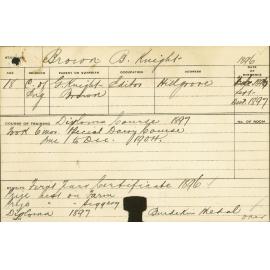 Brown B. Knight
1896
AGE RELIGION PARENT OR GUARDIAN OCCUPATION ADDRESS
18 C. of G. Knight Editor Hillgrove
Eng Brown
Dec. 1897
COURSE OF TRAINING Diploma Course 1897 NO. OF ROOM
Took 6 mos. Special Dairy Course
June 1 to Dec. 1904.
First Class Certificate 1896
Prize best on Farm
Prize " " Piggery
Diploma 1897 Burdekin Medal